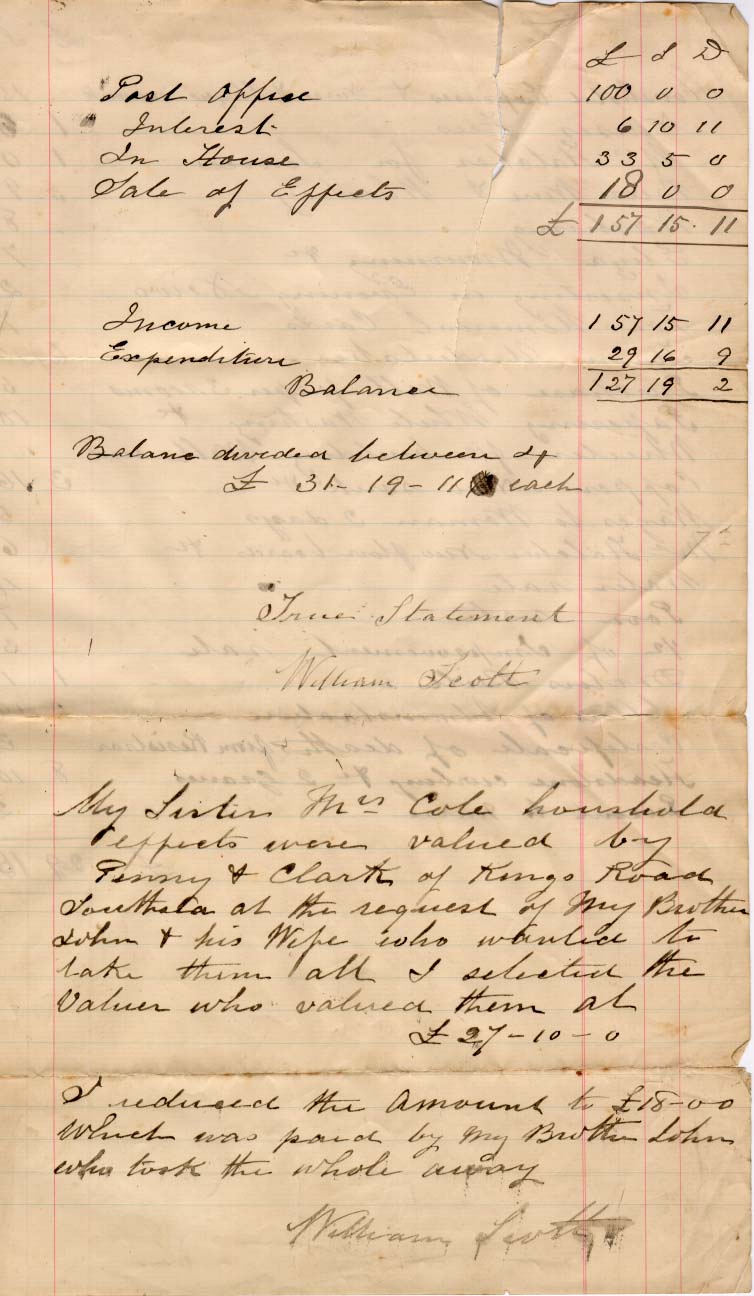 £ S D
Post Office 100 0 0
Interest 6 10 11
In House 33 5 0
Sale of Effects 18 0 0
£ 157 15 11
Income 157 15 11
Expenditure 29 16 9
Balance 127 19 2
Balanc divided between 4
£ 31-19-11 each
True Statement
William Scott
My Sister Mrs Cole houshold
effects were valued by
Penny & Clark of Kings Road
Southsea at the request of My Brother
John & his Wife who wanted to
take them all I selected the
Valuer who valued them at
£27-10-0
I reduced the Amount to £18-00
Which was paid by my Brother John
who took the whole away
William Scott